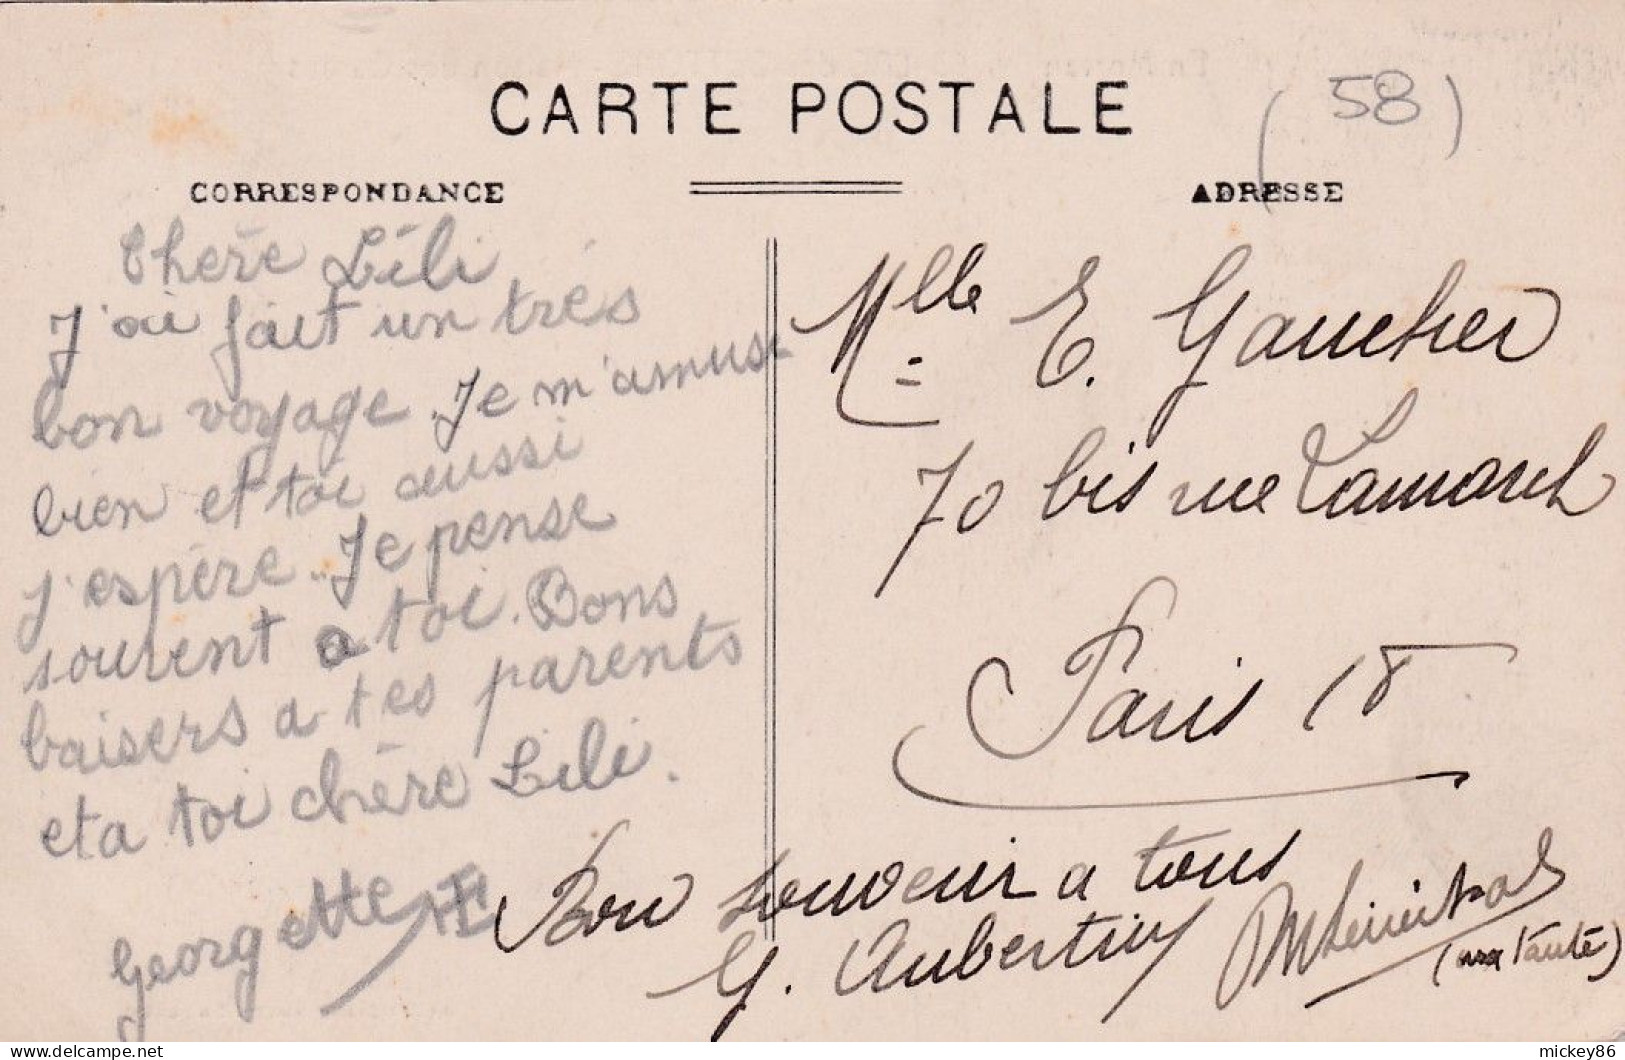 CARTE POSTALE
(58)
CORRESPONDANCE
ADRESSE
Chère Lili
J'ai fait un très
bon voyage. Je m'amuse
bien et toi aussi
j'espère. Je pense
souvent a toi. Bons
baisers a tes parents
et a toi chère Lili.
Georgette
Mlle E. Gaucher
70 bis rue Lamarck
Paris 18
Bon souvenir a tous
G. Aubertin
(ma Tante)
mickey86